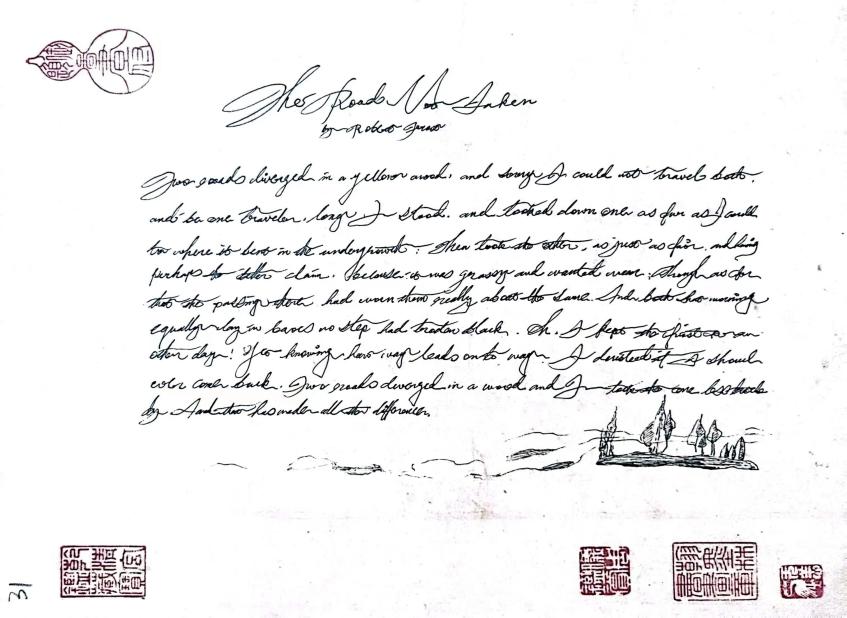 The Road Not Taken
by Robert Frost
Two roads diverged in a yellow wood, and sorry I could not travel both.
and be one traveler, long I stood. and looked down one as far as I could
to where it bent in the undergrowth; then took the other, as just as fair, and having
perhaps the better claim. because it was grassy and wanted wear. though as for
that the passing there had worn them really about the same. And both that morning
equally lay in leaves no step had trodden black. Oh, I kept the first for an
other day! Yet knowing how way leads on to way. I doubted if I should
ever come back. Two roads diverged in a wood and I took the one less
by And that has made all the difference.
31